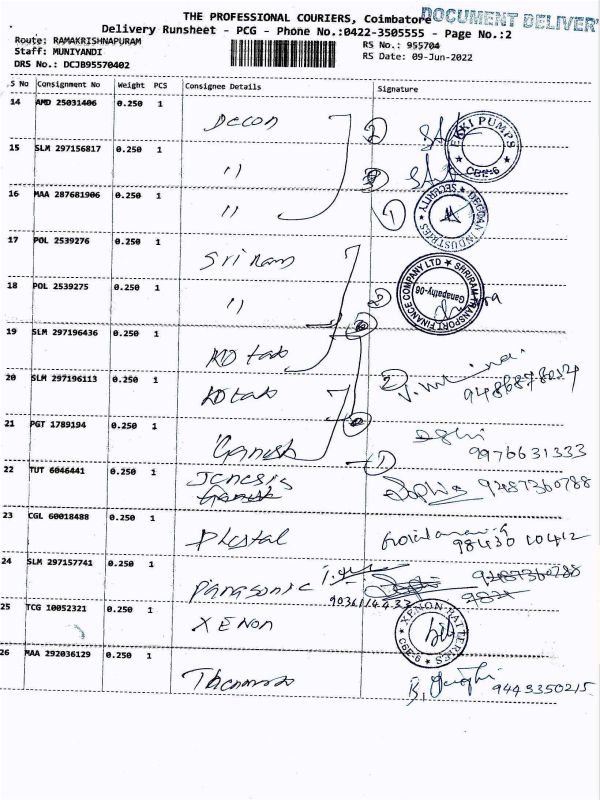 THE PROFESSIONAL COURIERS, Coimbatore
DOCUMENT DELIVER
Delivery Runsheet - PCG - Phone No.:0422-3505555 - Page No.:2
Route: RAMAKRISHNAPURAM
RS No.: 955704
Staff: MUNIYANDI
RS Date: 09-Jun-2022
DRS No.: DCJB95570402
S No Consignment No Weight PCS Consignee Details Signature
14 AMD 25031406 0.250 1 Decon 2
PUMPS CBE-6
15 SLM 297156817 0.250 1 "
16 MAA 287681906 0.250 1 " 1
INDUSTRIES SECURITY
17 POL 2539276 0.250 1 Sri Ram
SHRIRAM TRANSPORT FINANCE COMPANY LTD Ganapathy-06
18 POL 2539275 0.250 1 "
19 SLM 297196436 0.250 1 KOtak
20 SLM 297196113 0.250 1 KOtak 2
21 PGT 1789194 0.250 1 Ganesh 9976631333
22 TUT 6046441 0.250 1 Jenesis 1 9487360788
Ganesh
23 CGL 60018488 0.250 1 98430 10412
24 SLM 297157741 0.250 1 Panasonic 9487360788
25 TCG 10052321 0.250 1 XENON
XENON BATTERIES CBE-6
26 MAA 292036129 0.250 1 9443350215